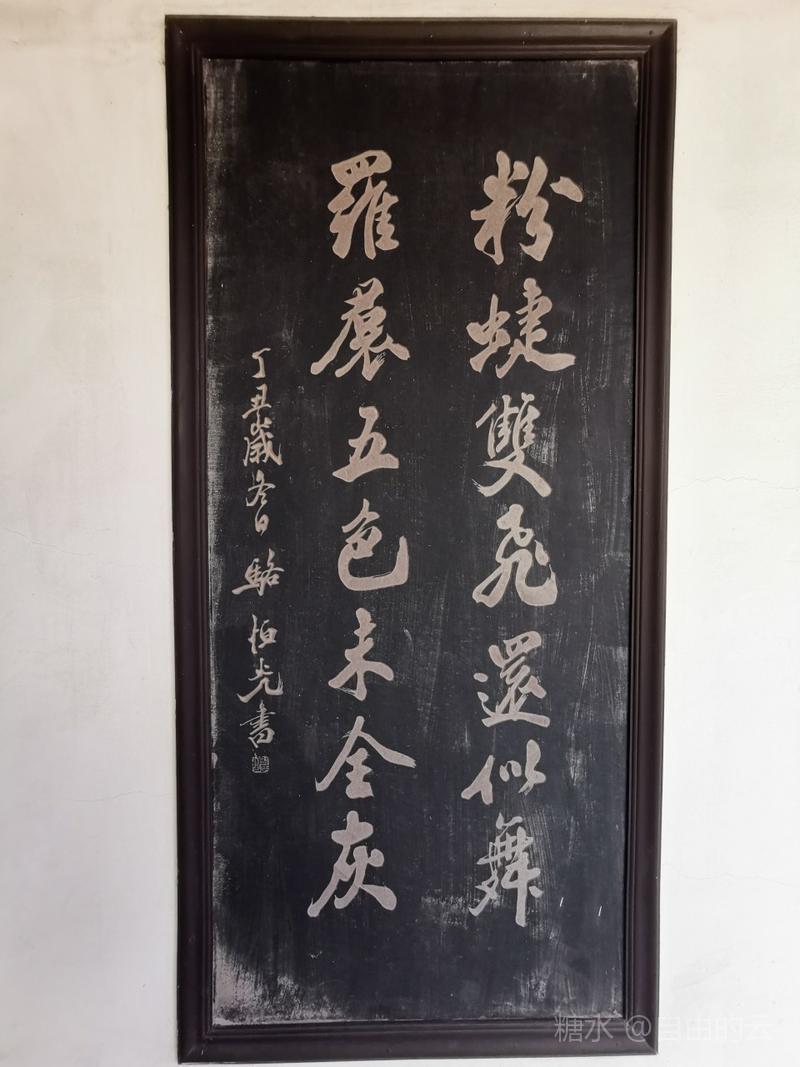 粉蜨雙飛還似舞
羅裠五色未全灰
丁丑歲冬日 駱恒光書
糖水 @自由的云